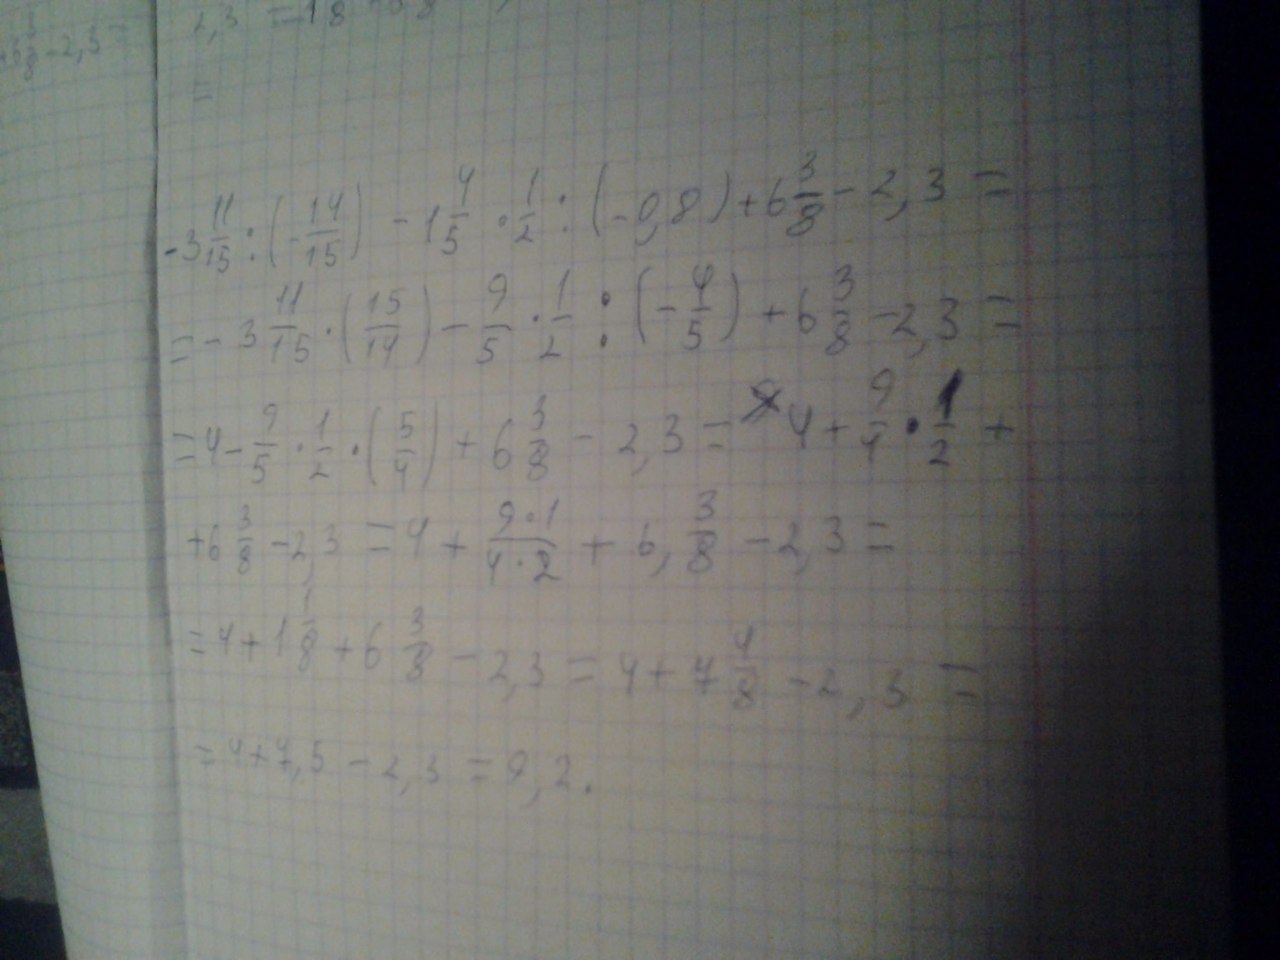 2,3 = 18
8 - 2,3 =
=
-3 11/15 : (-14/15) - 1 4/5 · 1/2 : (-0,8) + 6 3/8 - 2,3 =
= -3 11/15 · (15/14) - 9/5 · 1/2 : (-4/5) + 6 3/8 - 2,3 =
= 4 - 9/5 · 1/2 · (5/4) + 6 3/8 - 2,3 = 4 + 9/4 · 1/2 +
+ 6 3/8 - 2,3 = 4 + 9·1/4·2 + 6, 3/8 - 2,3 =
= 4 + 1 1/8 + 6 3/8 - 2,3 = 4 + 7 4/8 - 2,3 =
= 4 + 7,5 - 2,3 = 9,2.